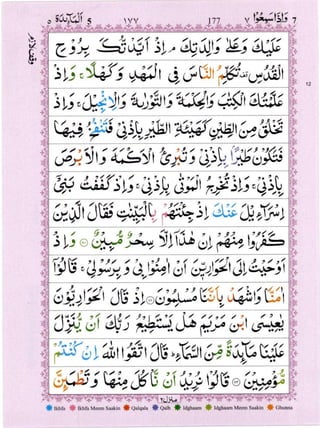 وَإِذَا سَمِعُوا ٧ 177 ١٧٧ اَلْمَآئِدَة ٥
عَلَيْكَ وَعَلٰى وَالِدَتِكَ ۘ اِذْ اَيَّدْتُّكَ بِرُوْحِ
الْقُدُسِ ۟ تُكَلِّمُ النَّاسَ فِى الْمَهْدِ وَكَهْلًا ۚ وَاِذْ
عَلَّمْتُكَ الْكِتٰبَ وَالْحِكْمَةَ وَالتَّوْرٰىةَ وَالْاِنْجِيْلَ ۚ وَاِذْ
تَخْلُقُ مِنَ الطِّيْنِ كَهَيْئَةِ الطَّيْرِ بِاِذْنِيْ فَتَنْفُخُ فِيْهَا
فَتَكُوْنُ طَيْرًۢا بِاِذْنِيْ وَتُبْرِئُ الْاَكْمَهَ وَالْاَبْرَصَ
بِاِذْنِيْ ۚ وَاِذْ تُخْرِجُ الْمَوْتٰى بِاِذْنِيْ ۚ وَاِذْ كَفَفْتُ بَنِيْٓ
اِسْرَآءِيْلَ عَنْكَ اِذْ جِئْتَهُمْ بِالْبَيِّنٰتِ فَقَالَ الَّذِيْنَ
كَفَرُوْا مِنْهُمْ اِنْ هٰذَآ اِلَّا سِحْرٌ مُّبِيْنٌ ۝ وَاِذْ
اَوْحَيْتُ اِلَى الْحَوَارِيّٖنَ اَنْ اٰمِنُوْا بِيْ وَبِرَسُوْلِيْ ۚ قَالُوْٓا
اٰمَنَّا وَاشْهَدْ بِاَنَّنَا مُسْلِمُوْنَ ۝ اِذْ قَالَ الْحَوَارِيُّوْنَ
يٰعِيْسَى ابْنَ مَرْيَمَ هَلْ يَسْتَطِيْعُ رَبُّكَ اَنْ يُّنَزِّلَ
عَلَيْنَا مَآئِدَةً مِّنَ السَّمَآءِ ؕ قَالَ اتَّقُوا اللّٰهَ اِنْ كُنْتُمْ
مُّؤْمِنِيْنَ ۝ قَالُوْا نُرِيْدُ اَنْ نَّاْكُلَ مِنْهَا وَتَطْمَئِنَّ
منزل ٢
Ikhfa Ikhfa Meem Saakin Qalqala Qalb Idghaam Idghaam Meem Saakin Ghunna